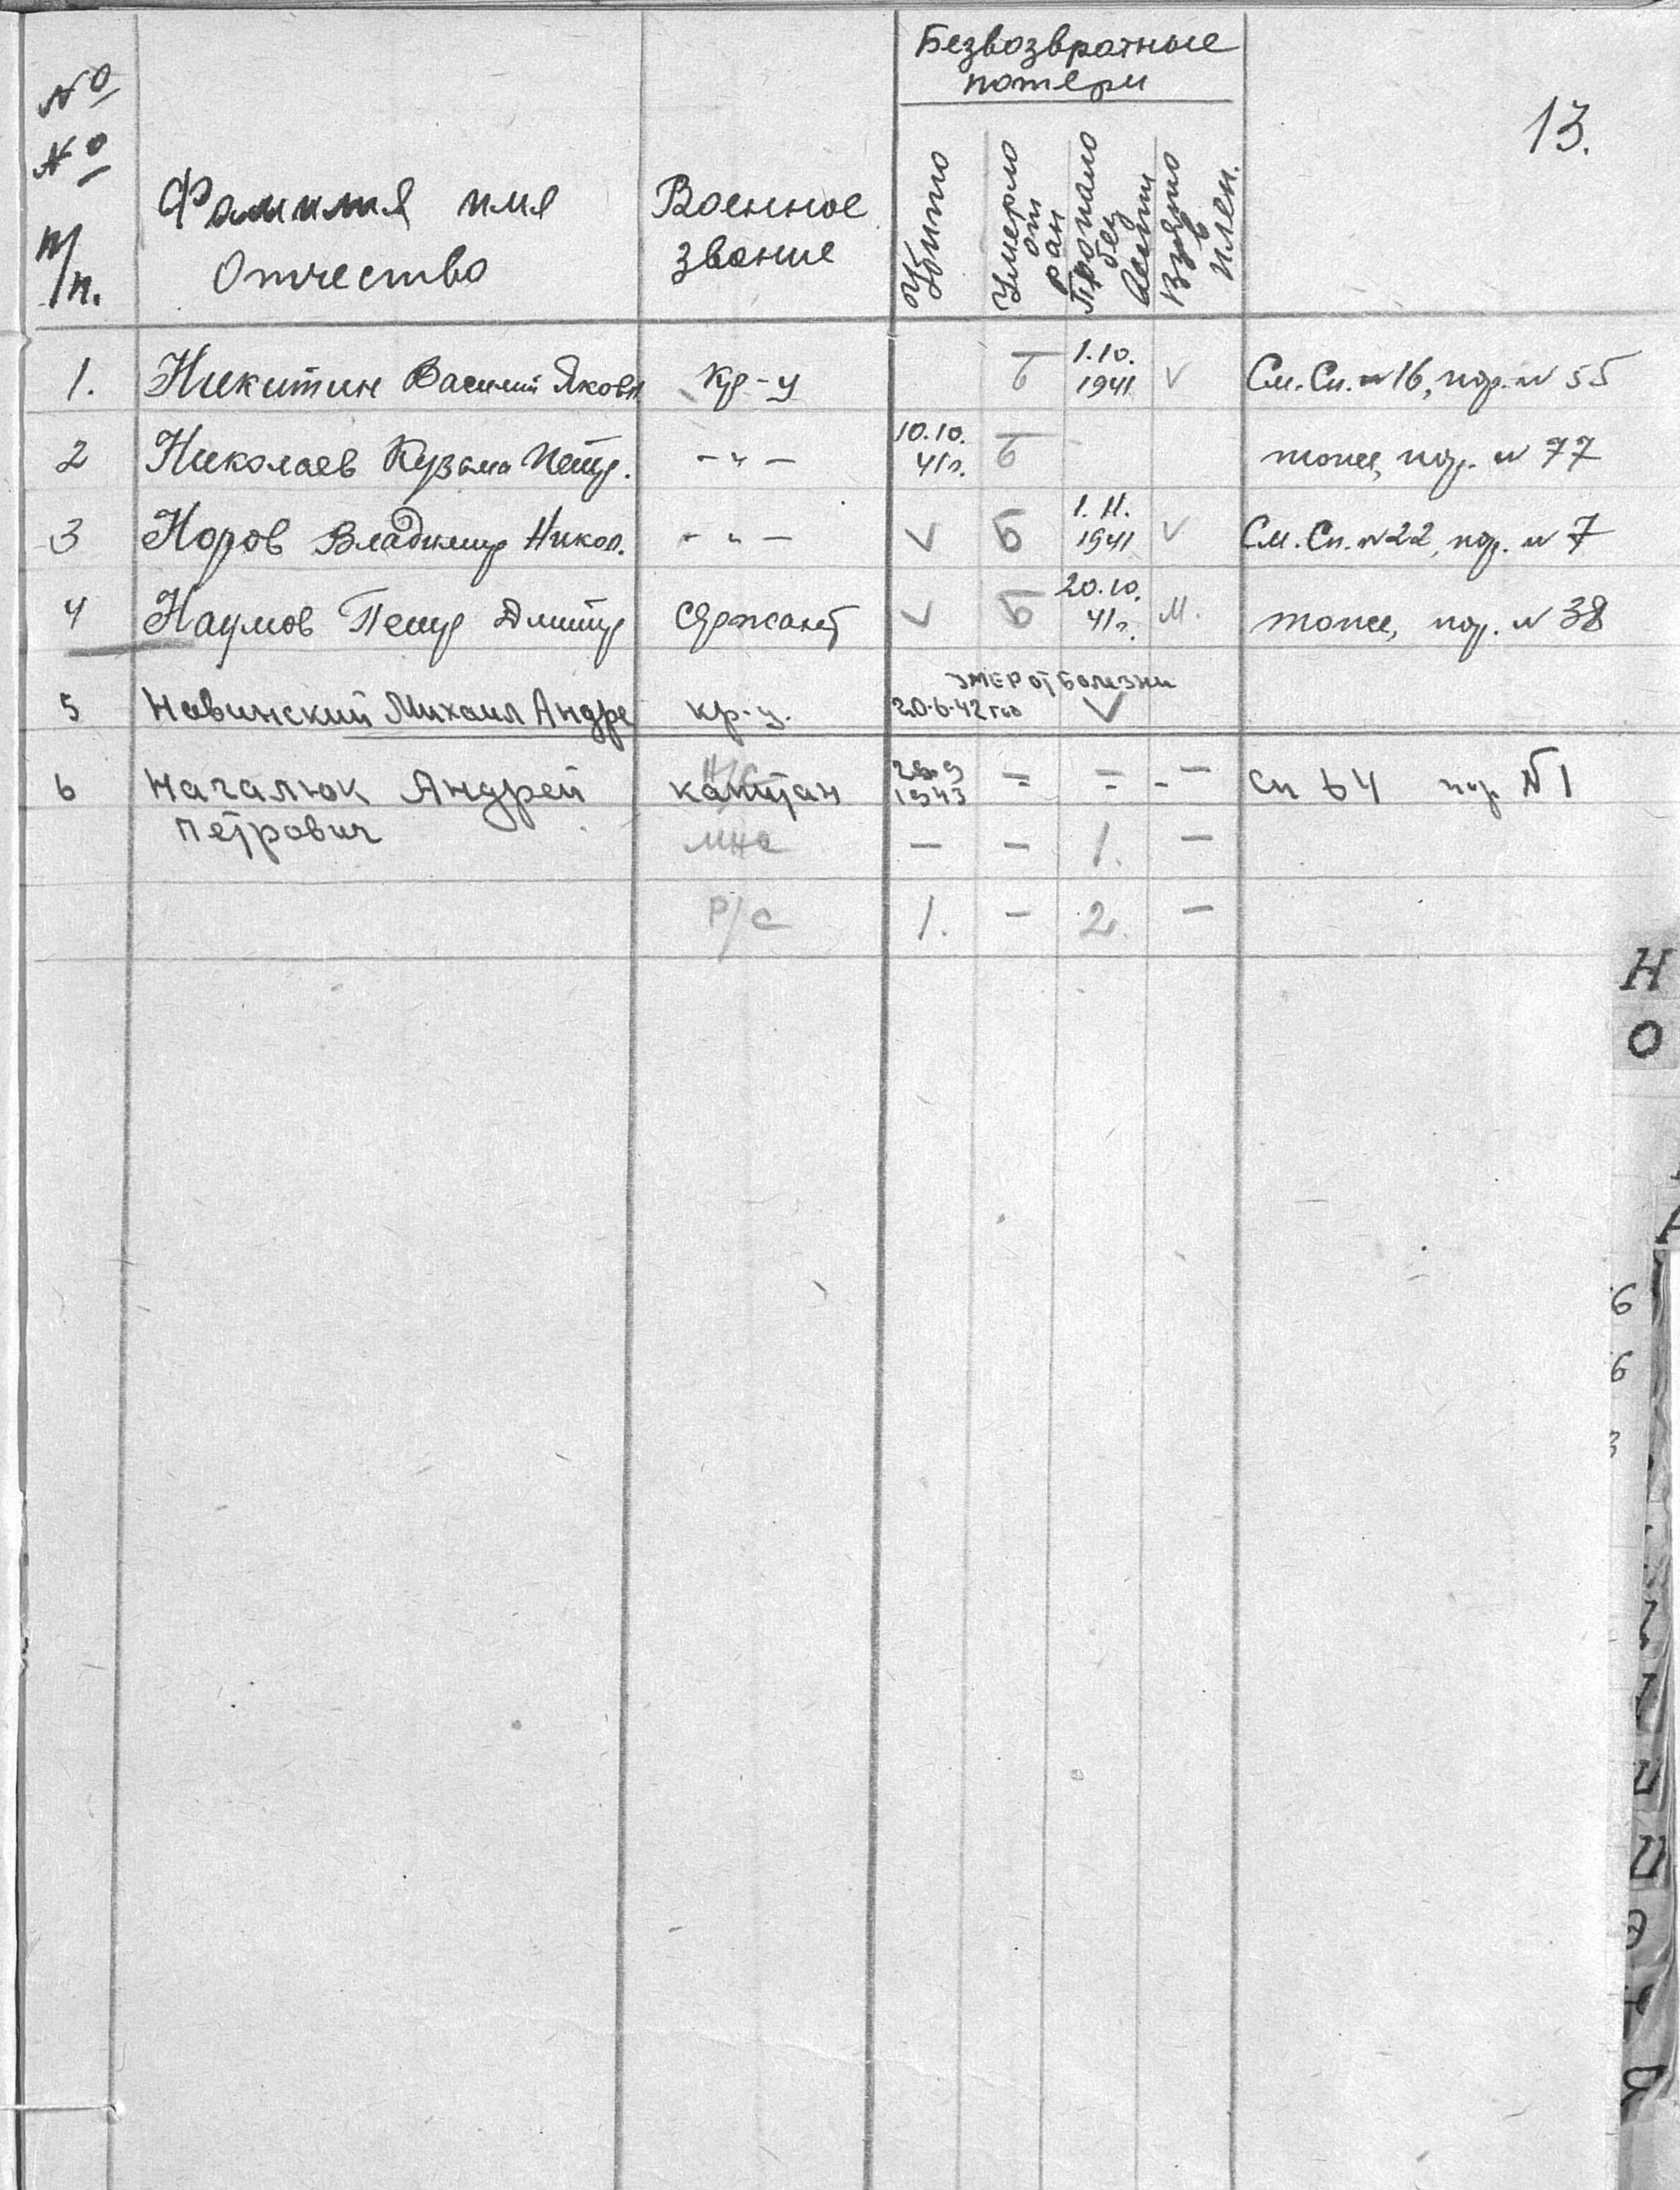 Безвозвратные
потери
13.
№
№
п/п.
Фамилия имя
Отчество
Военное
звание
Убито
Умерло от ран
Пропало без вести
Взято в плен.
1. Никитин Василий Яковл кр-ц Б 1.10. 1941 V См. Сп. № 16, пор. № 55
2 Николаев Кузьма Петр. -"- 10.10. 41г. Б тоже, пор. № 77
3 Норов Владимир Никол. -"- V Б 1.11. 1941 V См. Сп. № 22, пор. № 7
4 Наумов Петр Дмитр сержант V Б 20.10. 41г. М. тоже, пор. № 38
умер от болезни
5 Навинский Михаил Андре кр-ц. 20.6.42 V
6 Нагалюк Андрей капитан 1943 - - - Сп 64 пор №1
Петрович мнс - - 1. -
Р/С 1. - 2. -
Н
О